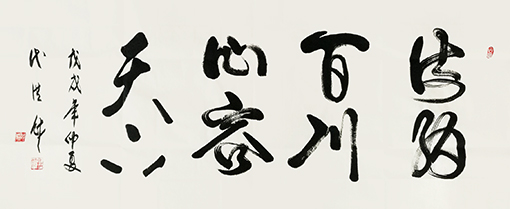 海纳
百川
心容
天下
戊戌年仲夏